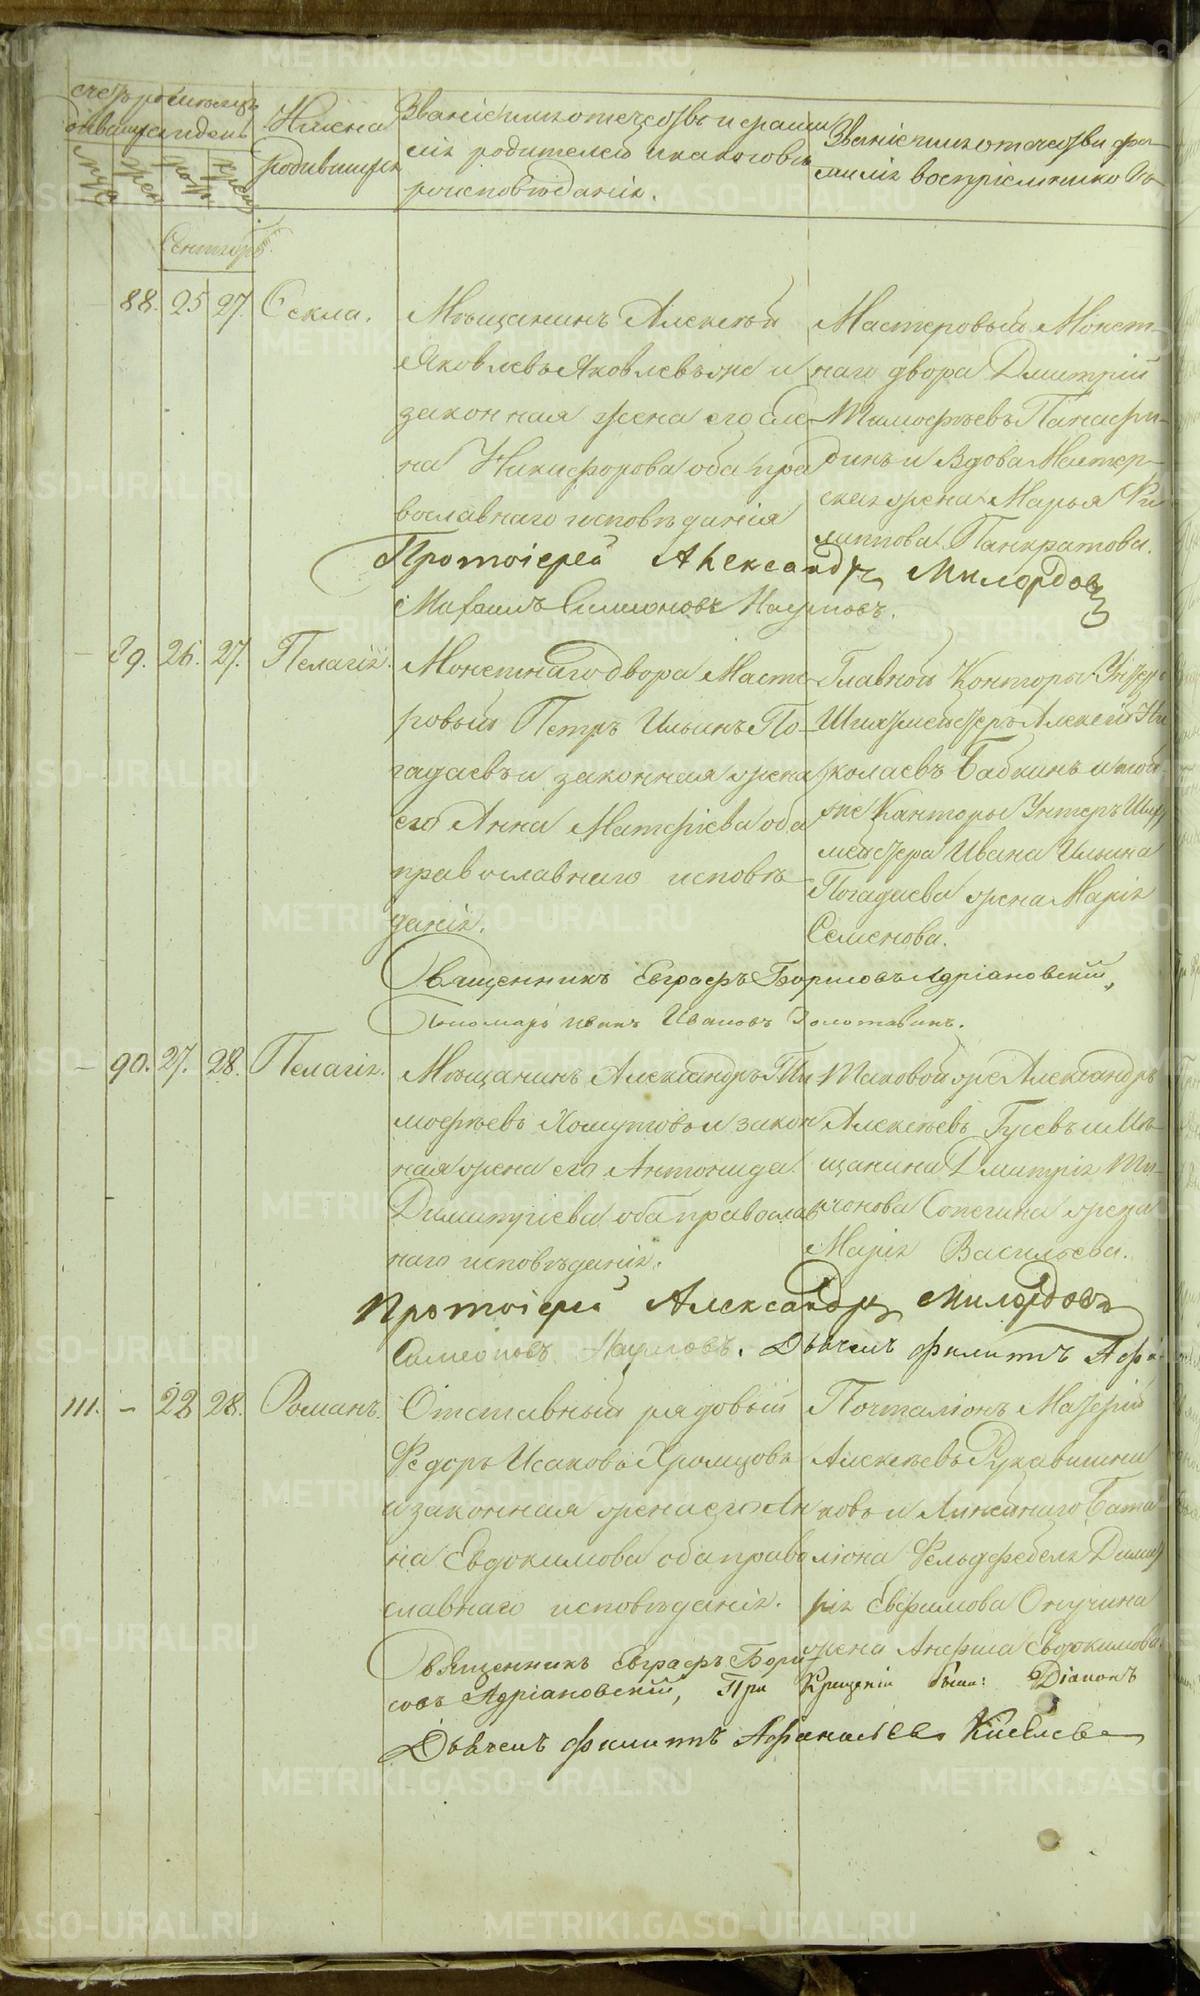 Счетъ родившихся
Имена родившихся
Званіе имя отчество и фамилія родителей и какого вѣроисповѣданія.
Званіе имя отчество и фамилія воспріемниковъ
Сентябрь
88. 25 27. Ѳекла.
Мѣщанинъ Алексѣй
Яковлевъ Яковлевъ же и
законная жена его Еле-
на Никифорова оба пра
вославнаго исповѣданія
Мастеровый Монет-
наго двора Дмитрій
Тимофѣевъ Панафи-
динъ и Вдова Мастер-
ская жена Марья Фи
липпова Панкратова.
Протоіерей Александръ Милордовъ
Симеоновъ Наумовъ.
89. 26. 27. Пелагія.
Монетнаго двора Масте-
ровый Петръ Ильинъ По-
гадаевъ и законная жена
его Анна Матфіева оба
православнаго исповѣ-
данія.
Главной Конторы Унтеръ
Шихтмейстеръ Алексей Ни
колаевъ Бабкинъ и той
же Канторы Унтеръ Ших
мейстера Ивана Ильина
Погадаева жена Марія
Семенова.
Священникъ Евграфъ Борисовъ Адріановскій,
Пономарь Иванъ Ивановъ Золотавинъ.
90. 27. 28. Пелагія.
Мѣщанинъ Александръ Ти
мофѣевъ Хомутовъ и закон
ная жена его Антонида
Димитріева оба православ
наго исповѣданія.
Таковой же Александръ
Алексѣевъ Гусевъ и Мѣ-
щанина Дмитрія
Сопегина жена
Марія Васильева.
Протоіерей Александръ Милордовъ
Симеоновъ Наумовъ. Дьячекъ Филиппъ Афа
111. - 22 28. Романъ.
Отставный рядовый
Федоръ Исаковъ Хромцовъ
и законная жена его Ан
на Евдокимова оба право
славнаго исповѣданія.
Почталіонъ
Алексѣевъ Рукавишни
ковъ и Линейнаго Бата
ліона Фельдфебеля Димит
рія Евфимова Онучина
жена Анфиса Евдокимова.
Священникъ Евграфъ Бори
совъ Адріановскій, При Крещеніи были: Діаконъ
Дьячекъ Филиппъ Афанасьевъ Киселевъ
METRIKI.GASO-URAL.RU